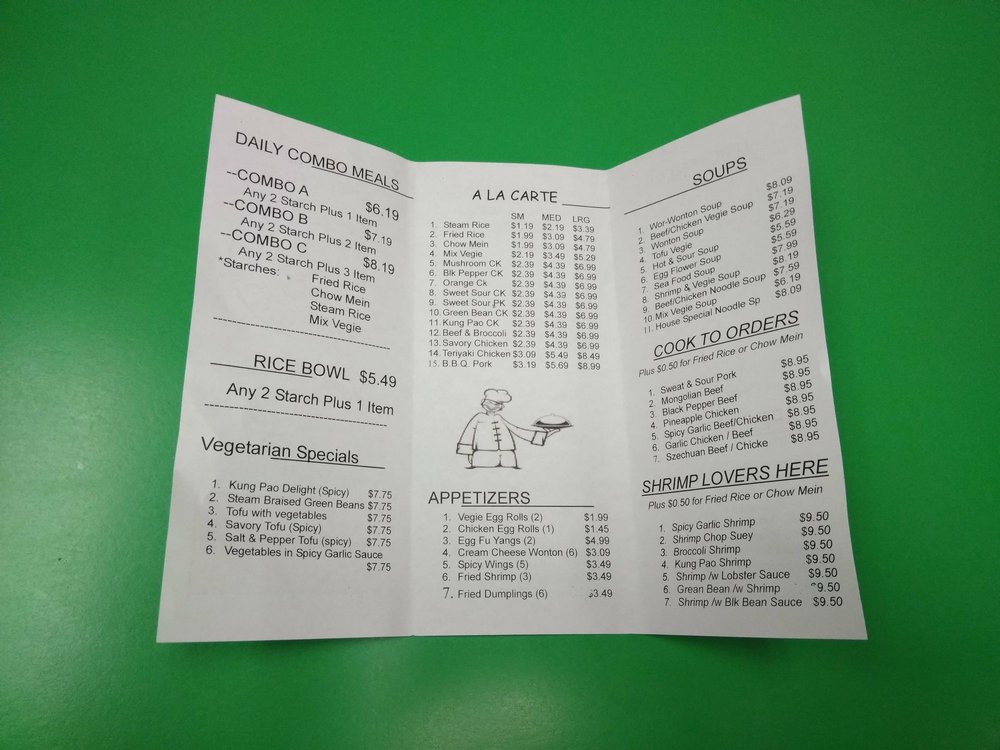 DAILY COMBO MEALS
--COMBO A $6.19
Any 2 Starch Plus 1 Item
--COMBO B $7.19
Any 2 Starch Plus 2 Item
--COMBO C $8.19
Any 2 Starch Plus 3 Item
*Starches: Fried Rice
Chow Mein
Steam Rice
Mix Vegie
RICE BOWL $5.49
Any 2 Starch Plus 1 Item
Vegetarian Specials
1. Kung Pao Delight (Spicy) $7.75
2. Steam Braised Green Beans $7.75
3. Tofu with vegetables $7.75
4. Savory Tofu (Spicy) $7.75
5. Salt & Pepper Tofu (spicy) $7.75
6. Vegetables in Spicy Garlic Sauce
$7.75
A LA CARTE
SM MED LRG
1. Steam Rice $1.19 $2.19 $3.39
2. Fried Rice $1.99 $3.09 $4.79
3. Chow Mein $1.99 $3.09 $4.79
4. Mix Vegie $2.19 $3.49 $5.29
5. Mushroom CK $2.39 $4.39 $6.99
6. Blk Pepper CK $2.39 $4.39 $6.99
7. Orange Ck $2.39 $4.39 $6.99
8. Sweet Sour CK $2.39 $4.39 $6.99
9. Sweet Sour PK $2.39 $4.39 $6.99
10. Green Bean CK $2.39 $4.39 $6.99
11. Kung Pao CK $2.39 $4.39 $6.99
12. Beef & Broccoli $2.39 $4.39 $6.99
13. Savory Chicken $2.39 $4.39 $6.99
14. Teriyaki Chicken $3.09 $5.49 $8.49
15. B.B.Q. Pork $3.19 $5.69 $8.99
APPETIZERS
1. Vegie Egg Rolls (2) $1.99
2. Chicken Egg Rolls (1) $1.45
3. Egg Fu Yangs (2) $4.99
4. Cream Cheese Wonton (6) $3.09
5. Spicy Wings (5) $3.49
6. Fried Shrimp (3) $3.49
7. Fried Dumplings (6) $3.49
SOUPS
1. Wor-Wonton Soup $8.09
2. Beef/Chicken Vegie Soup $7.19
3. Wonton Soup $7.19
4. Tofu Vegie $6.29
5. Hot & Sour Soup $5.59
6. Egg Flower Soup $5.59
7. Sea Food Soup $7.99
8. Shrimp & Vegie Soup $8.19
9. Beef/Chicken Noodle Soup $7.59
10. Mix Vegie Soup $6.19
11. House Special Noodle Sp $8.09
COOK TO ORDERS
Plus $0.50 for Fried Rice or Chow Mein
1. Sweat & Sour Pork $8.95
2. Mongolian Beef $8.95
3. Black Pepper Beef $8.95
4. Pineapple Chicken $8.95
5. Spicy Garlic Beef/Chicken $8.95
6. Garlic Chicken / Beef $8.95
7. Szechuan Beef / Chicke $8.95
SHRIMP LOVERS HERE
Plus $0.50 for Fried Rice or Chow Mein
1. Spicy Garlic Shrimp $9.50
2. Shrimp Chop Suey $9.50
3. Broccoli Shrimp $9.50
4. Kung Pao Shrimp $9.50
5. Shrimp /w Lobster Sauce $9.50
6. Grean Bean /w Shrimp $9.50
7. Shrimp /w Blk Bean Sauce $9.50